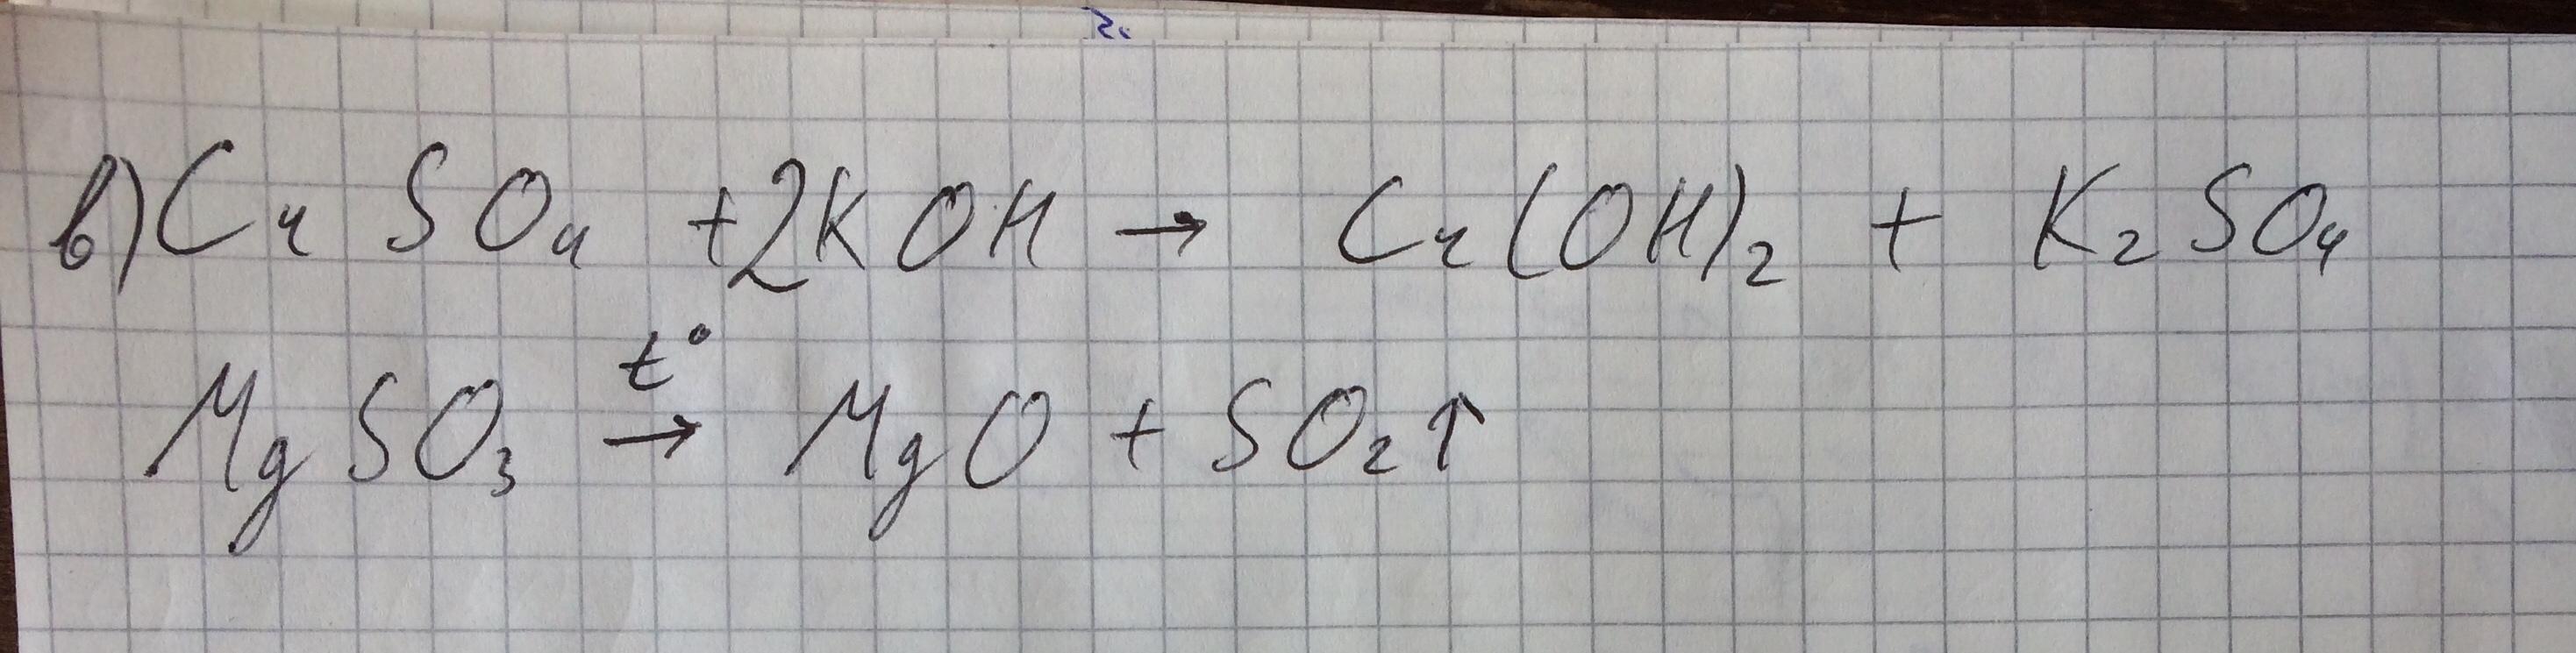 в) CrSO₄ +2KOH → Cr(OH)₂ + K₂SO₄
t°
MgSO₃ → MgO + SO₂↑